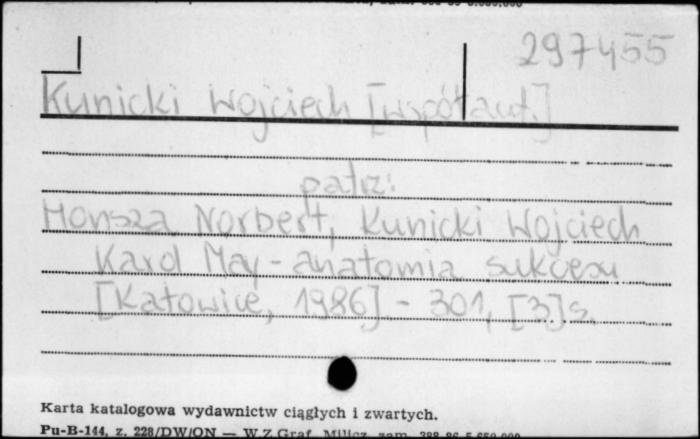 297455
Kunicki Wojciech [współaut.]
patrz:
Honsza Norbert, Kunicki Wojciech
Karol May - anatomia sukcesu
[Katowice, 1986] - 301, [3] s.
Karta katalogowa wydawnictw ciągłych i zwartych.
Pu-B-144, z. 228/DW/ON — W.Z.Graf. Milicz, zam.